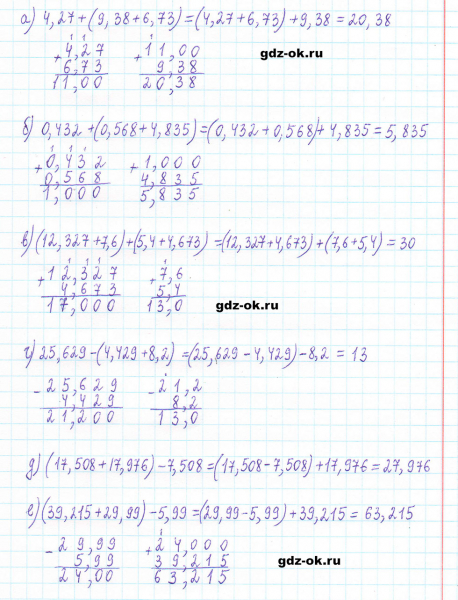 а) 4,27+(9,38+6,73)=(4,27+6,73)+9,38=20,38
1 1
+4,27 +11,00
6,73 9,38
11,00 20,38
gdz-ok.ru
б) 0,432+(0,568+4,835)=(0,432+0,568)+4,835=5,835
1 1 1
+0,432 +1,000
0,568 4,835
1,000 5,835
в) (12,327+7,6)+(5,4+4,673)=(12,327+4,673)+(7,6+5,4)=30
1 1 1 1
+12,327 +7,6
4,673 5,4
17,000 13,0
gdz-ok.ru
г) 25,629-(4,429+8,2)=(25,629-4,429)-8,2=13
-25,629 -21,2
4,429 8,2
21,200 13,0
д) (17,508+17,976)-7,508=(17,508-7,508)+17,976=27,976
е) (39,215+29,99)-5,99=(29,99-5,99)+39,215=63,215
1
-29,99 +24,000
5,99 39,215
24,00 63,215
gdz-ok.ru